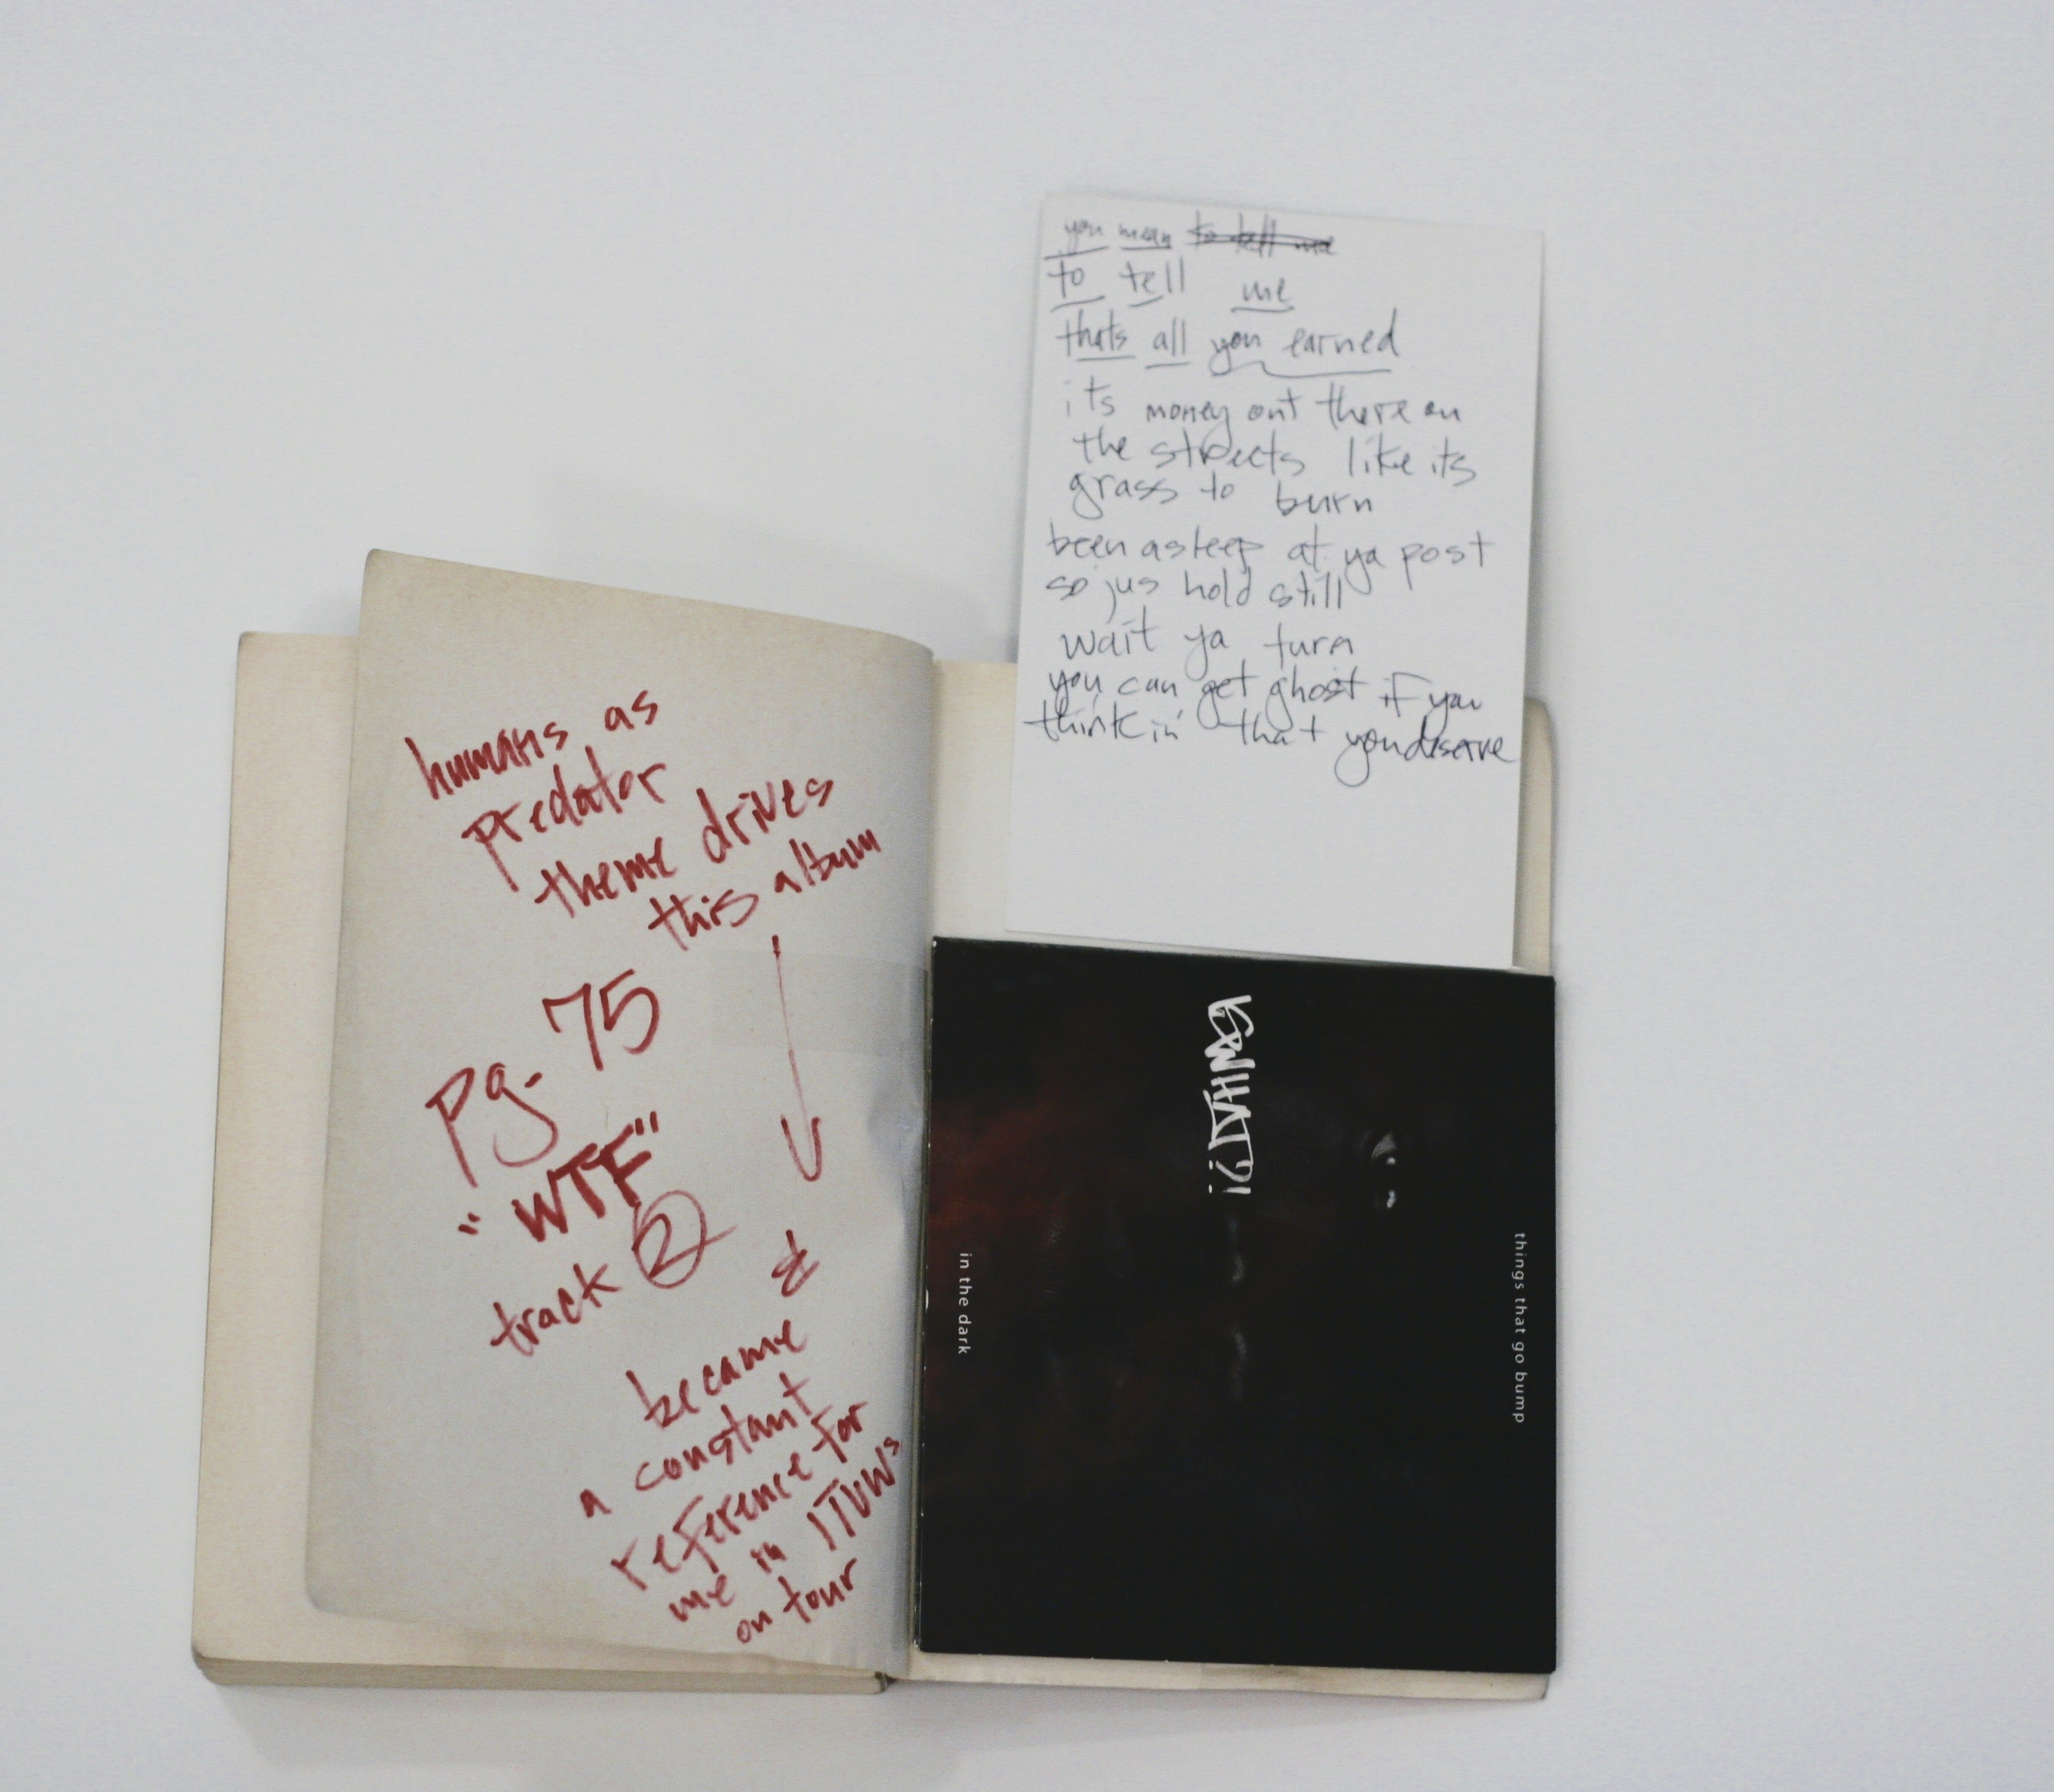 you mean to tell me
to tell me
thats all you earned
its money out there on
the streets like its
grass to burn
been asleep at ya post
so jus hold still
wait ya turn
you can get ghost if you
thinkin' that you deserve
humans as
predator
theme drives
this album
pg. 75
"WTF"
track 2
&
became
a constant
reference for
me in ITVWs
on tour
things that go bump
in the dark